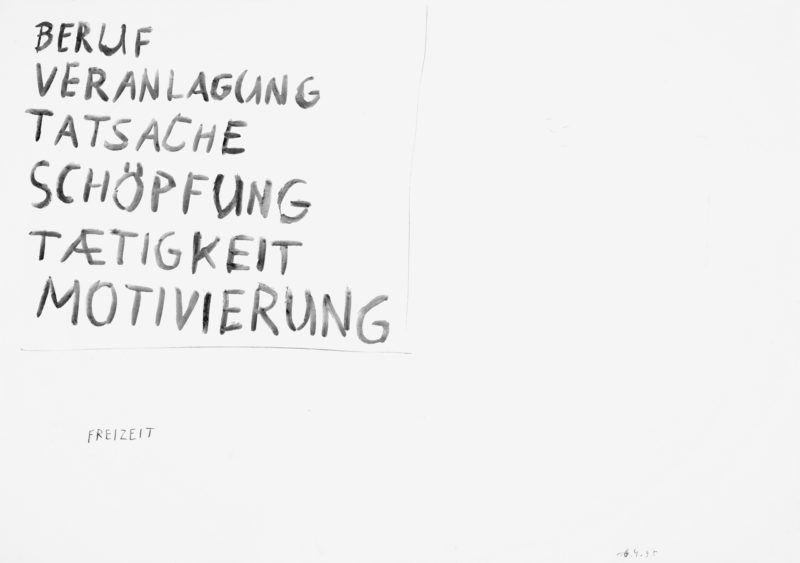 BERUF
VERANLAGUNG
TATSACHE
SCHÖPFUNG
TÆTIGKEIT
MOTIVIERUNG
FREIZEIT